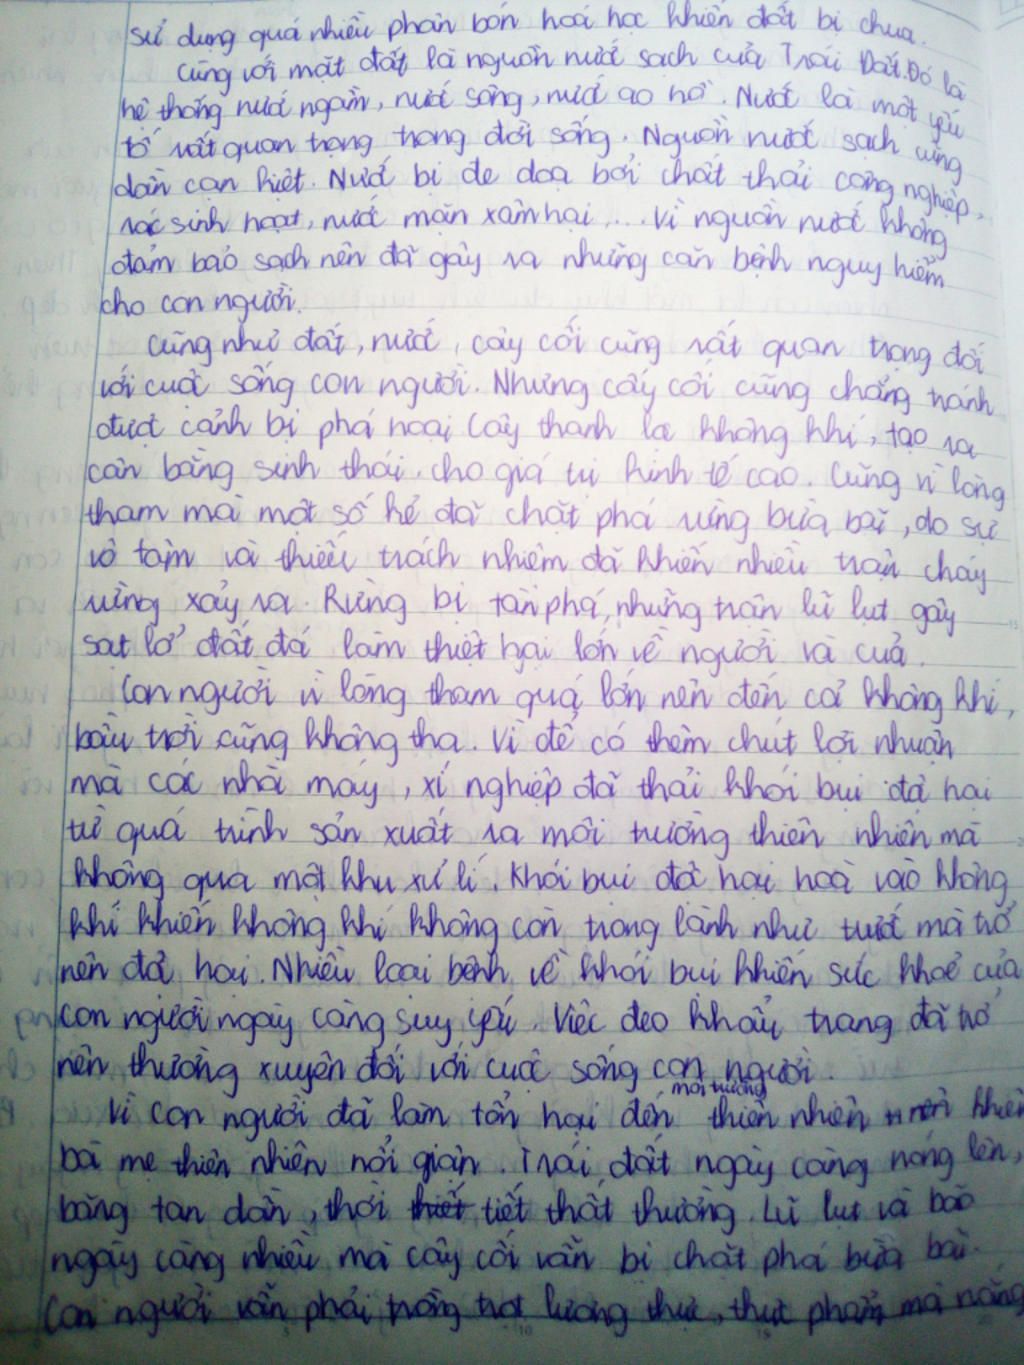 sử dụng quá nhiều phân bón hoá học khiến đất bị chua.
Cùng với mặt đất là nguồn nước sạch của Trái Đất. Đó là
hệ thống nước ngầm, nước sông, nước ao hồ. Nước là một yếu
tố rất quan trọng trong đời sống. Nguồn nước sạch cũng
dần cạn kiệt. Nước bị đe doạ bởi chất thải công nghiệp,
rác sinh hoạt, nước mặn xâm hại,... Vì nguồn nước không
đảm bảo sạch nên đã gây ra những căn bệnh nguy hiểm
cho con người.
Cũng như đất, nước, cây cối cũng rất quan trọng đối
với cuộc sống con người. Nhưng cây cối cũng chẳng tránh
được cảnh bị phá hoại. Cây thanh lọc không khí, tạo ra
cân bằng sinh thái, cho giá trị kinh tế cao. Cũng vì lòng
tham mà một số kẻ đã chặt phá rừng bừa bãi, do sự
vô tâm và thiếu trách nhiệm đã khiến nhiều trận cháy
rừng xảy ra. Rừng bị tàn phá, những trận lũ lụt gây
sạt lở đất đá làm thiệt hại lớn về người và của.
Con người vì lòng tham quá lớn nên đến cả không khí,
bầu trời cũng không tha. Vì để có thêm chút lợi nhuận
mà các nhà máy, xí nghiệp đã thải khói bụi độc hại
từ quá trình sản xuất ra môi trường thiên nhiên mà
không qua một khu xử lí. Khói bụi độc hại hoà vào không
khí khiến không khí không còn trong lành như trước mà trở
nên độc hại. Nhiều loại bệnh về khói bụi khiến sức khoẻ của
con người ngày càng suy yếu. Việc đeo khẩu trang đã trở
nên thường xuyên đối với cuộc sống con người.
Vì con người đã làm tổn hại đến môi trường thiên nhiên nên khiến
bà mẹ thiên nhiên nổi giận. Trái đất ngày càng nóng lên,
băng tan dần, thời tiết thất thường. Lũ lụt và bão
ngày càng nhiều mà cây cối vẫn bị chặt phá bừa bãi.
Con người vẫn phải trồng trọt lương thực, thực phẩm mà nắng